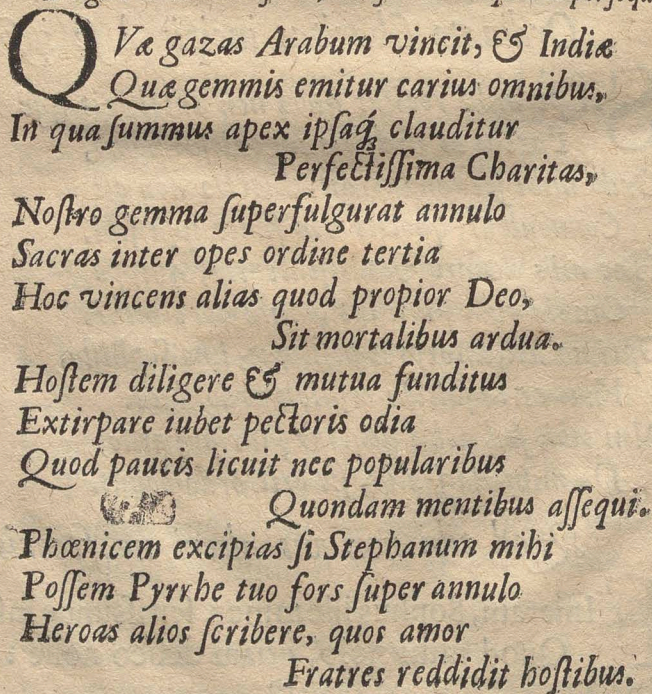 QVæ gazas Arabum vincit, & Indiæ
Quæ gemmis emitur carius omnibus,
In qua ſummus apex ipſaq́; clauditur
Perfectiſſima Charitas,
Noſtro gemma ſuperfulgurat annulo
Sacras inter opes ordine tertia
Hoc vincens alias quod propior Deo,
Sit mortalibus ardua.
Hoſtem diligere & mutua funditus
Extirpare iubet pectoris odia
Quod paucis licuit nec popularibus
Quondam mentibus aſſequi.
Phœnicem excipias ſi Stephanum mihi
Poſſem Pyrrhe tuo fors ſuper annulo
Heroas alios ſcribere, quos amor
Fratres reddidit hoſtibus.